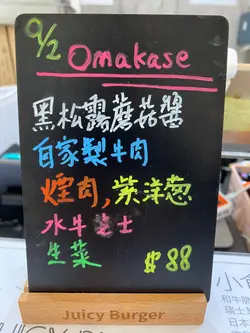 9/2
Omakase
黑松露蘑菇醬
自家製牛肉
煙肉,紫洋葱
水牛芝士
生菜 $88
Juicy Burger